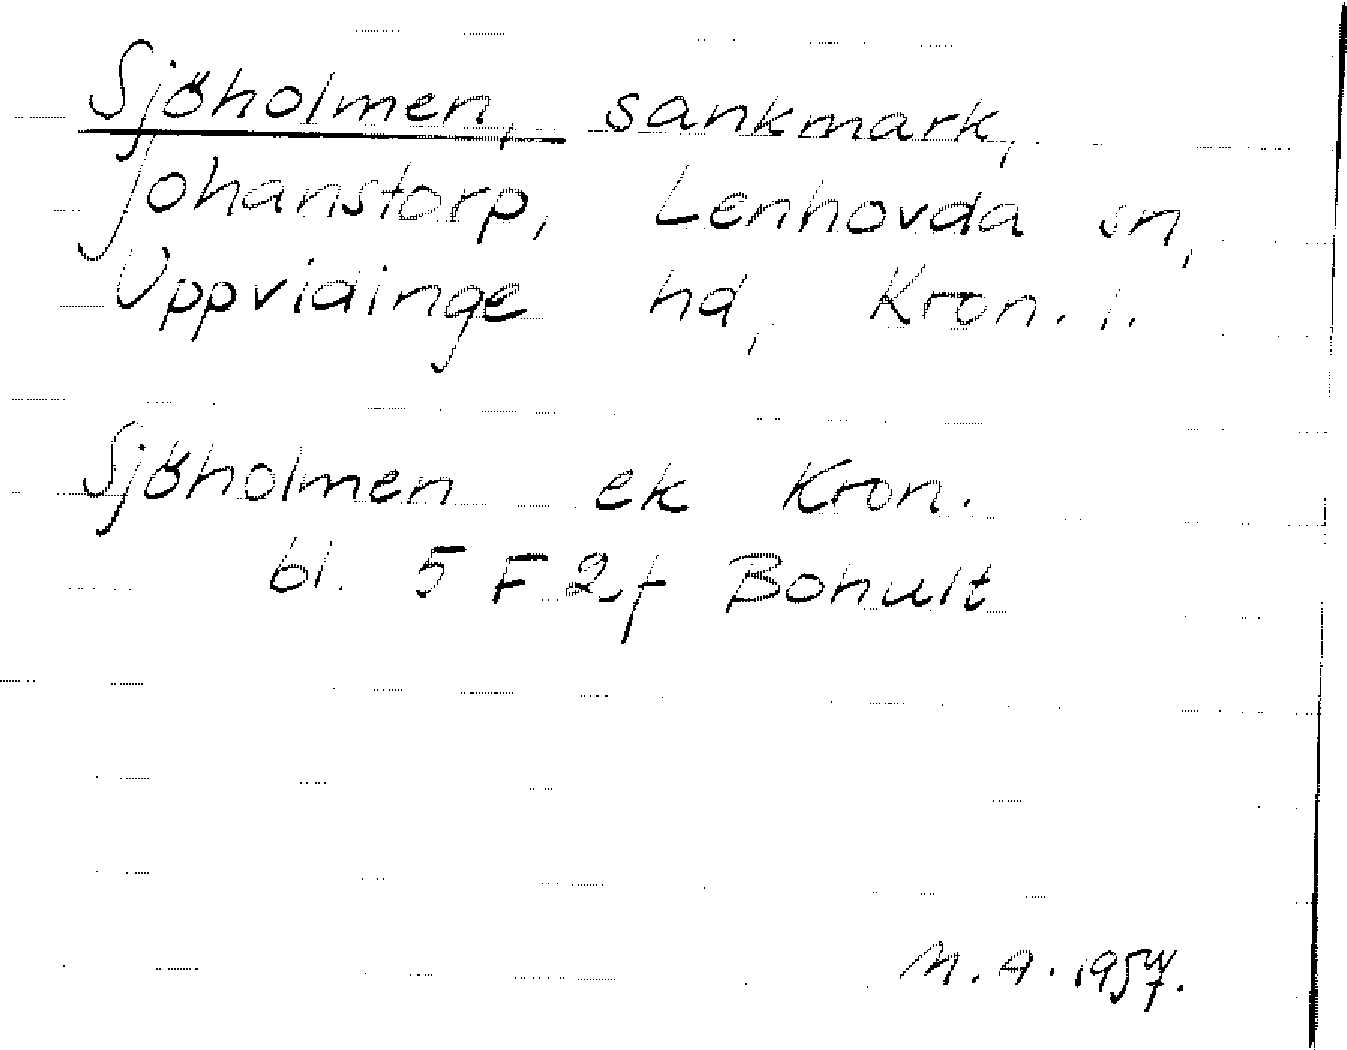 Sjöholmen, sankmark,
Johanstorp, Lenhovda sn,
Uppvidinge hd, Kron. l.
Sjöholmen ek Kron.
bl. 5 F 2f Bohult
M. A. 1957.